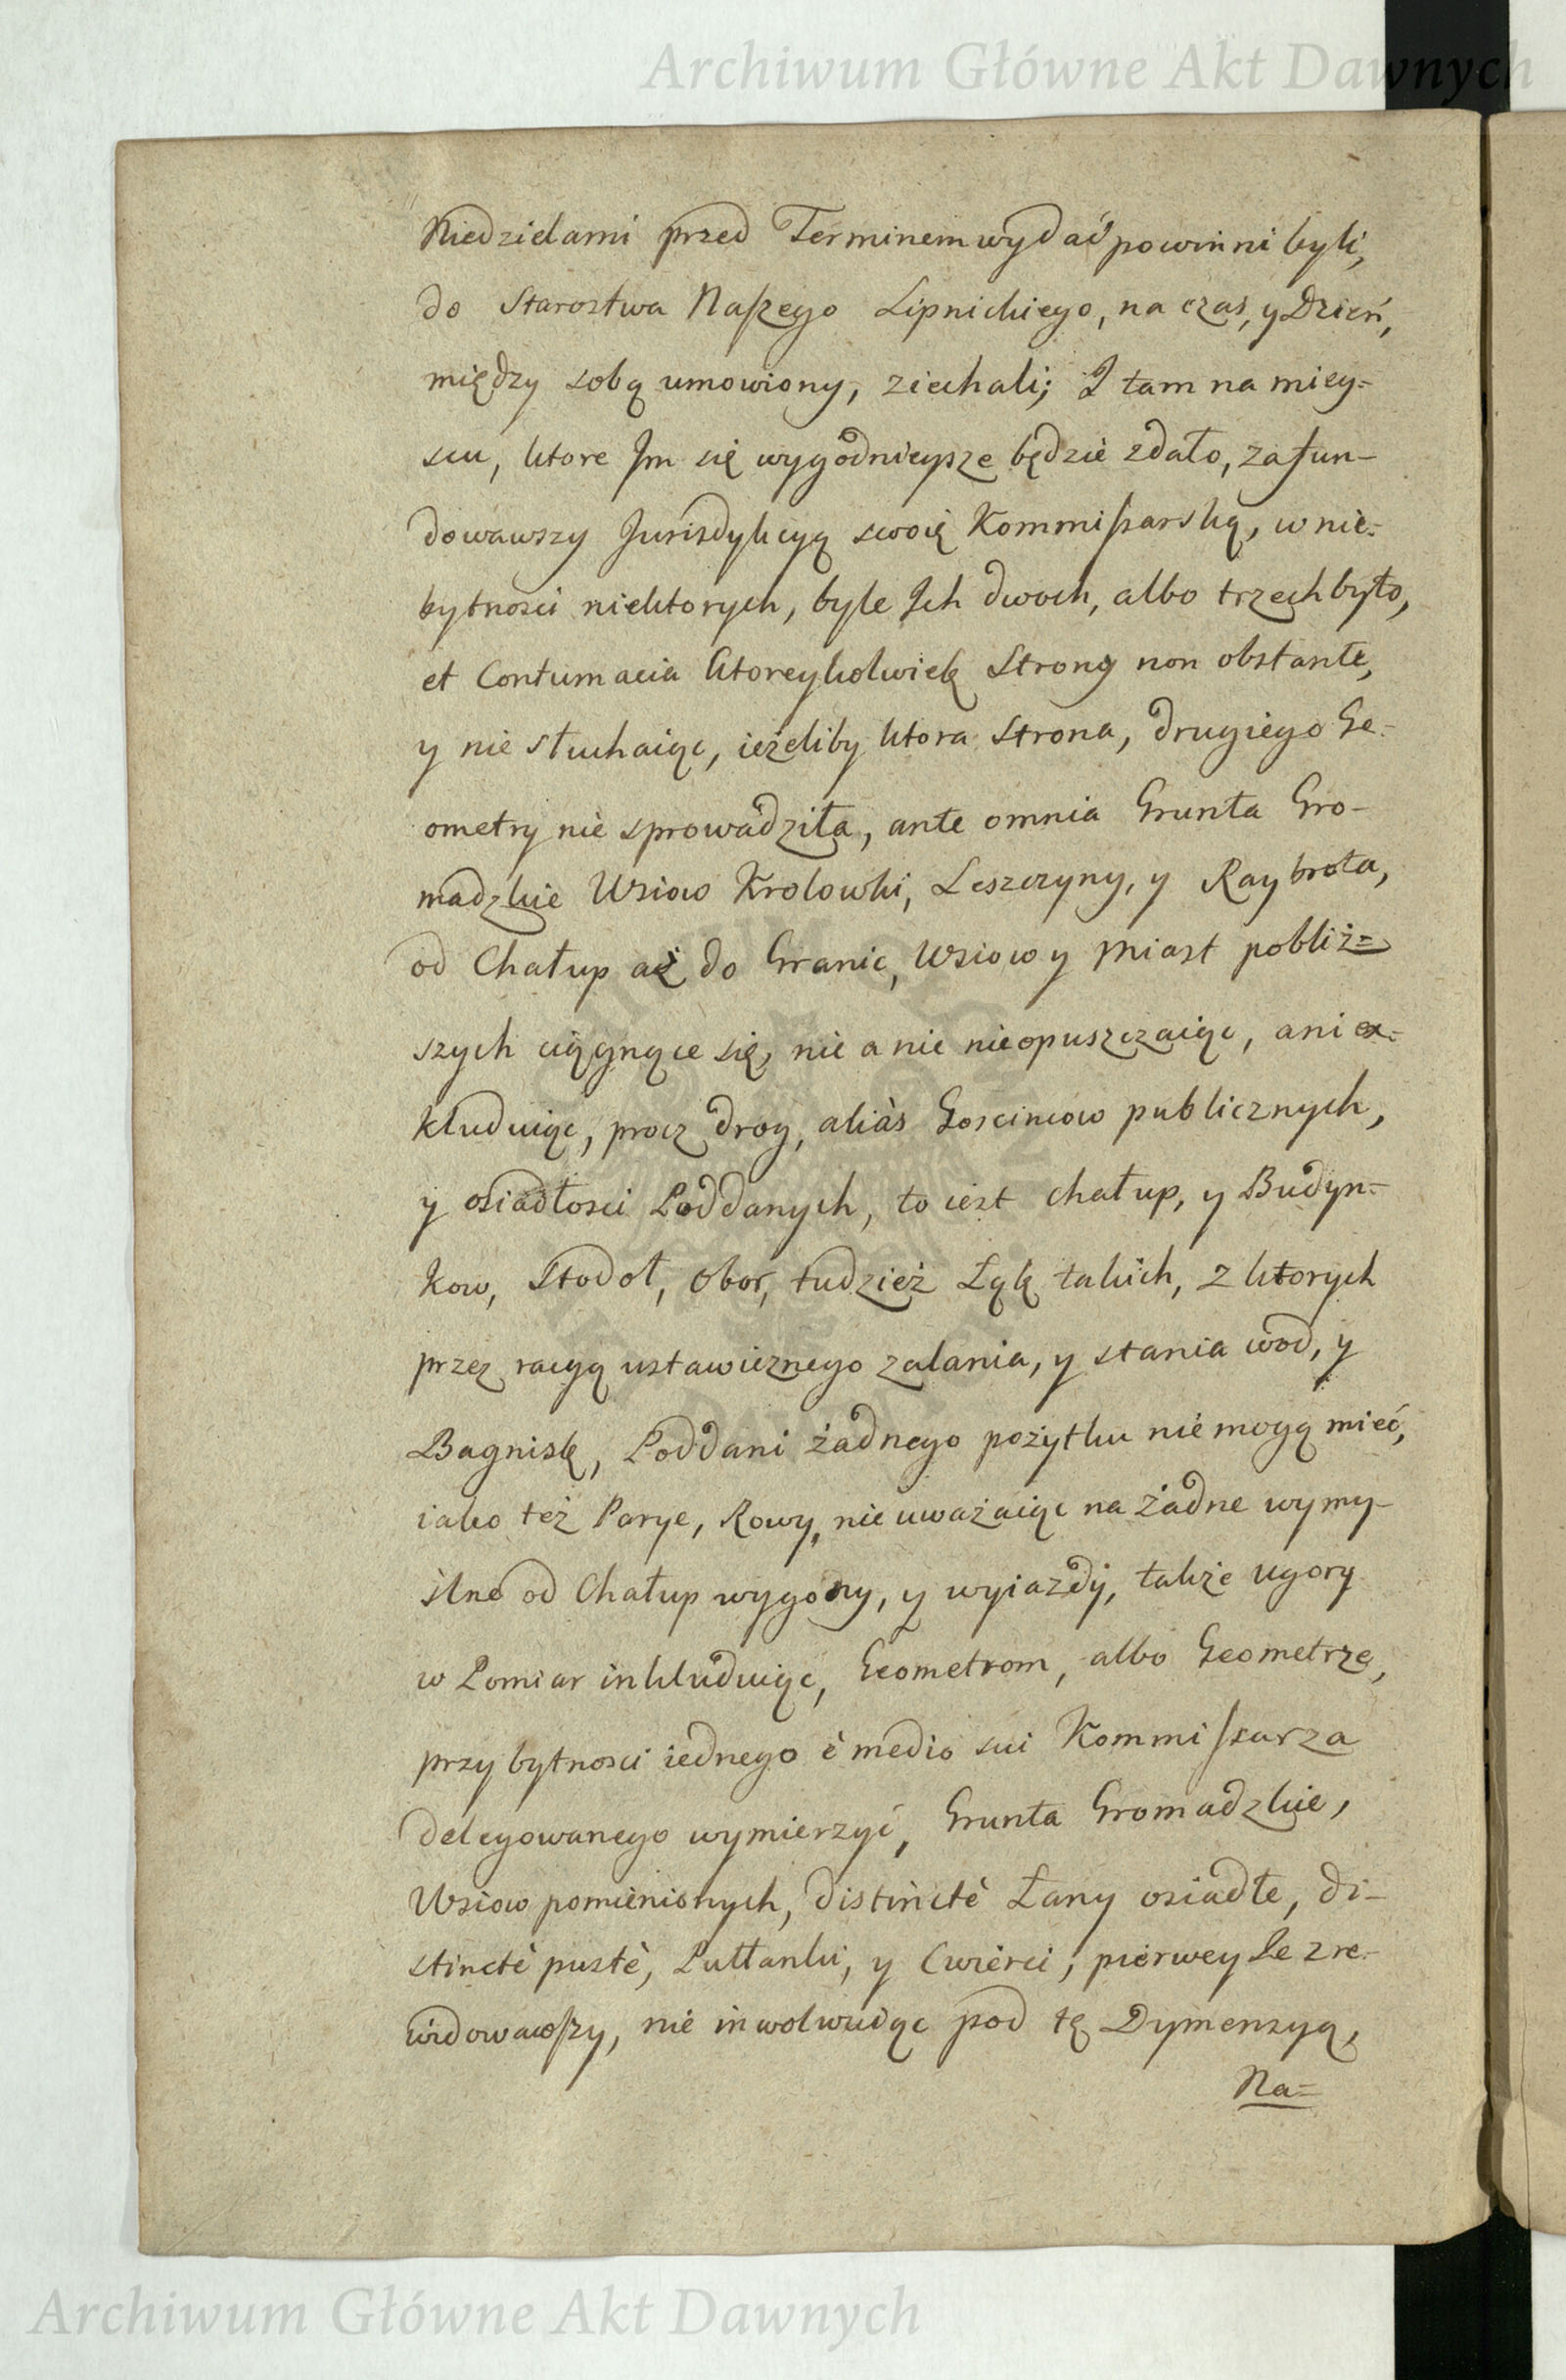 Archiwum Główne Akt Dawnych
Niedzielami przed Terminem wydać powinni byli,
do Starostwa Naszego Lipnickiego, na czas, y Dzień,
między sobą umowiony, ziechali; I tam na miey=
scu, ktore Im się wygodnieysze będzie zdało, zafun-
dowawszy Jurisdykcyą swoię Kommissarską, w nie=
bytnosci niektorych, byle Ich dwoch, albo trzech było,
et Contumacia ktoreykolwiek Strony non obstante,
y nie słuchaiąc, ieżeliby ktora Strona, drugiego Ge=
ometry nie sprowadziła, ante omnia Grunta Gro-
madzkie Wsiow Krolowki, Leszczyny, y Raybrota,
od Chałup aż do Granic, Wsiow y Miast pobliż=
szych ciągnące się, nic a nic nieopuszczaiąc, ani ex=
kluduiąc, procz drog, aliàs Goscincow publicznych,
y osiadłosci Poddanych, to iest chałup, y Budyn=
kow, Stodoł, Obor, tudzież Łąk takich, z ktorych
przez racyą ustawicznego zalania, y stania wod, y
Bagnisk, Poddani żadnego pożytku nie mogą mieć,
iako też Parye, Rowy, nie uważaiąc na żadne wymy-
ślne od Chałup wygody, y wyiazdy, także ugory
w Pomiar inkluduiąc, Geometrom, albo Geometrze,
przy bytnosci iednego è medio sui Kommissarza
delegowanego wymierzyć, Grunta Gromadzkie,
Wsiow pomienionych, distinctè Łany osiadłe, di-
stinctè puste, Pułłanki, y Cwierci, pierwey Je zre-
widowawszy, nie inwolwuiąc pod tę Dymensyą,
Na=
Archiwum Główne Akt Dawnych